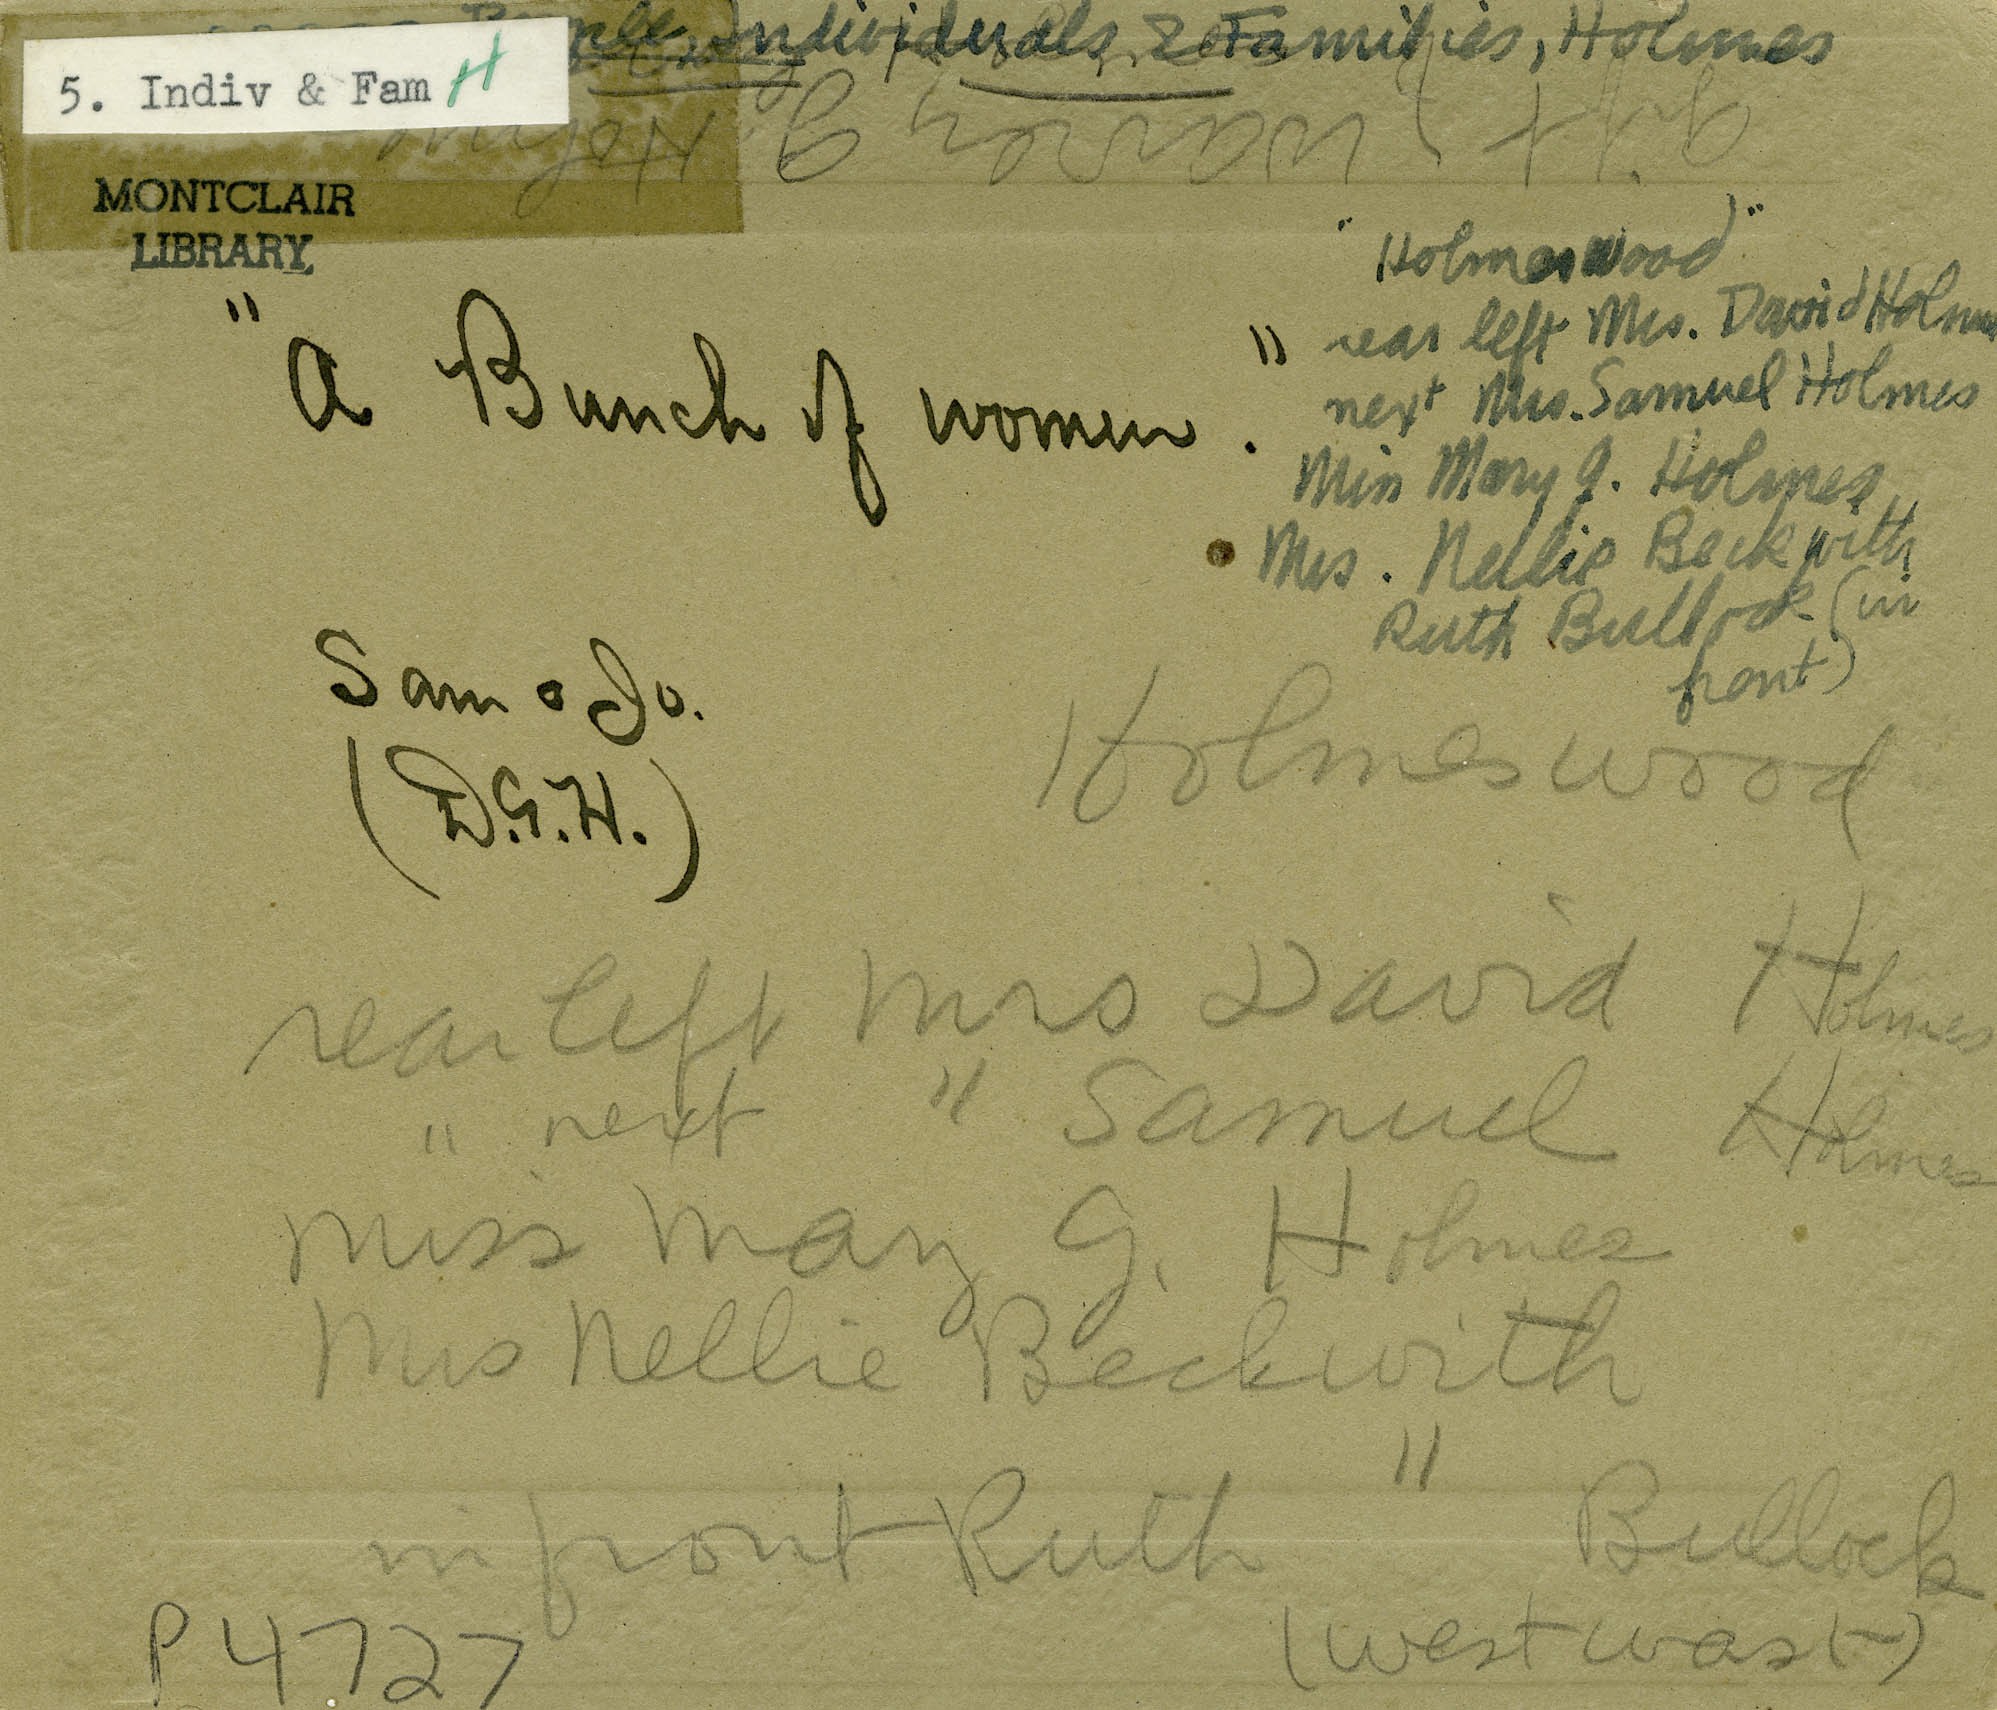 People, Individuals & Families, Holmes
5. Indiv & Fam H
MONTCLAIR
LIBRARY
"Holmeswood"
rear left Mrs. David Holmes
next Mrs. Samuel Holmes
Miss Mary G. Holmes
Mrs. Nellie Beckwith
Ruth Bullock (in
front)
"A Bunch of women."
Sam & Jo.
(D.G.H.)
Holmeswood
rear left Mrs David Holmes
" next " Samuel Holmes
Miss Mary G. Holmes
Mrs Nellie Beckwith
"
in front Ruth Bullock
(west wast)
P4727